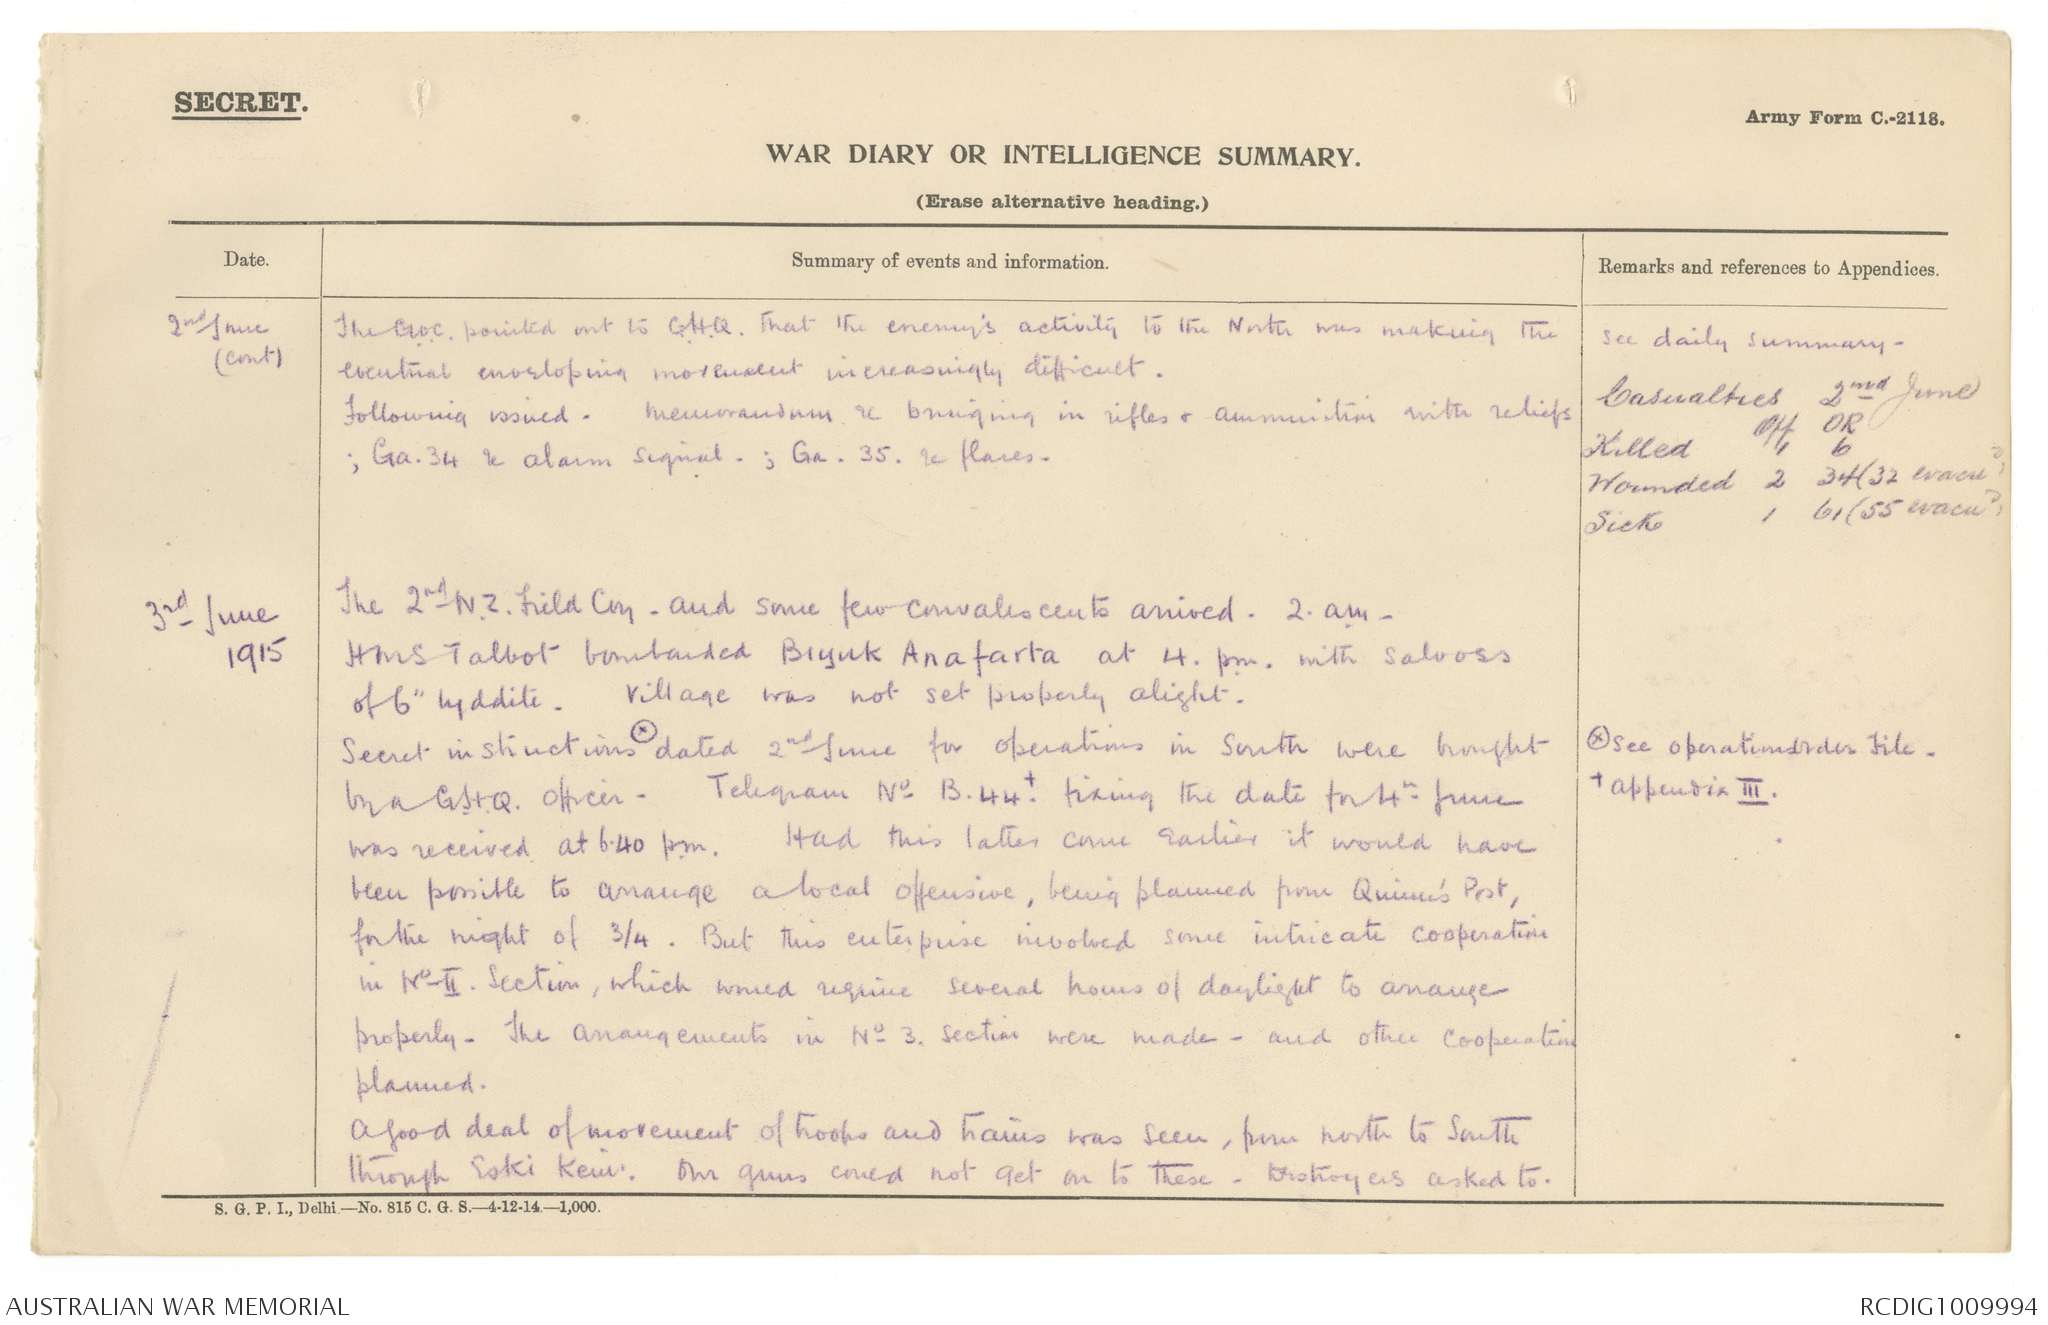 SECRET.
Army Form C.-2118.
WAR DIARY OR INTELLIGENCE SUMMARY.
(Erase alternative heading.)
Date.
Summary of events and information.
Remarks and references to Appendices.
2nd June
(cont)
The G.O.C. pointed out to G.H.Q. that the enemy's activity to the North was making the
eventual enveloping movement increasingly difficult.
Following issued - Memorandum re bringing in rifles & ammunition with reliefs
; Ga. 34 re alarm signal - ; Ga. 35. re flares.
see daily summary -
Casualties 2nd June
Off OR
Killed 1 6
Wounded 2 34 (32 evacu'd)
Sick 1 61 (55 evacu'd)
3rd June
1915
The 2nd N.Z. Field Coy - and some few convalescents arrived - 2. am -
HMS Talbot bombarded Biyuk Anafarta at 4. pm. with salvoss
of 6" lyddite. Village was not set properly alight.
Secret instructions ⊗ dated 2nd June for operations in South were brought
by a G.H.Q. Officer - Telegram No B.44 †. fixing the date for 4th June
was received at 6.40 pm. Had this latter come earlier it would have
been possible to arrange a local offensive, being planned from Quinn's Post,
for the night of 3/4. But this enterprise involved some intricate cooperation
in No II. Section, which would require several hours of daylight to arrange
properly - The arrangements in No 3. section were made - and other cooperation
planned.
A good deal of movement of troops and trains was seen, from north to South
through Eski Keui. Our guns could not get on to these - Destroyers asked to.
⊗ See operations order File -
† Appendix III.
S. G. P. I., Delhi.—No. 815 C. G. S.—4-12-14.—1,000.
AUSTRALIAN WAR MEMORIAL
RCDIG1009994